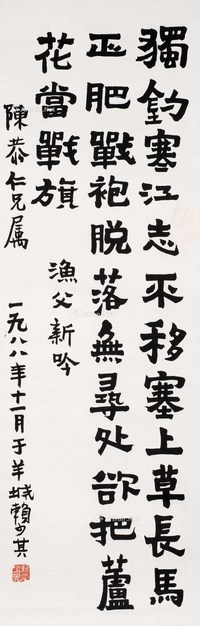 獨釣塞江志不移塞上草長馬
正肥戰袍脱落無尋处欲把蘆
花當戰旗
漁父新吟
陳恭仁兄属
一九八八年十一月于羊城賴少其